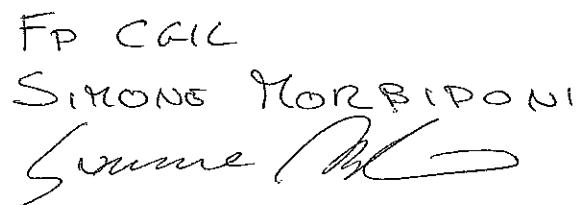 FP CGIL
SIMONE MORBIDONI
Simone